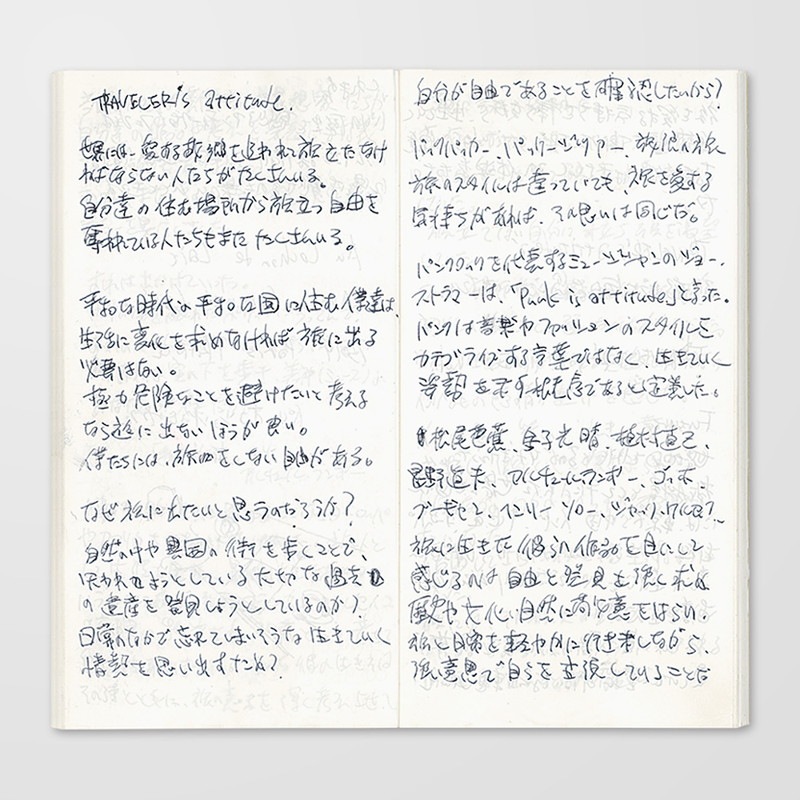 TRAVELER's attitude.
世界には、愛する故郷を追われて旅立たなけ
ればならない人たちがたくさんいる。
自分達の住む場所から旅立つ自由を
奪われている人たちもまた たくさんいる。
平和な時代の平和な国に住む僕達は、
生活に変化を求めなければ旅に出る
必要はない。
極力危険なことを避けたいと考える
なら旅に出ないほうが良い。
僕たちには、旅をしない自由がある。
なぜ旅に出たいと思うのだろうか?
自然の中や異国の街を歩くことで、
失われようとしている大切な過去
の遺産を発見しようとしているのか?
日常のなかで忘れてしまいそうな生きていく
情熱を思い出すため?
自分が自由であることを確認したいから?
バックパッカー、バッケージツアー、旅
旅のスタイルは違っていても、旅を愛する
気持ちがあれば、その思いは同じだ。
パンクロックを代表するミュージシャンのジョー・
ストラマーは、「Punk is attitude」と言った。
パンクは音楽やファッションのスタイルを
カテゴライズする言葉ではなく、生きていく
姿勢を示す根を序であると定義した。
松尾芭蕉、金子光晴、植村直己、
星野道夫、アルチュール・ランボー、ゴッホ、
ゴーギャン、ヘンリー・ソロー、ジャック・ケルアック、
旅に生きた彼らの作品を目にして
感じるのは自由と発見を強く求め
歴史や文化、自然に尊敬をはらい、
旅と日常を軽やかに行き来しながら、
強い意思で自らを主張していることだ